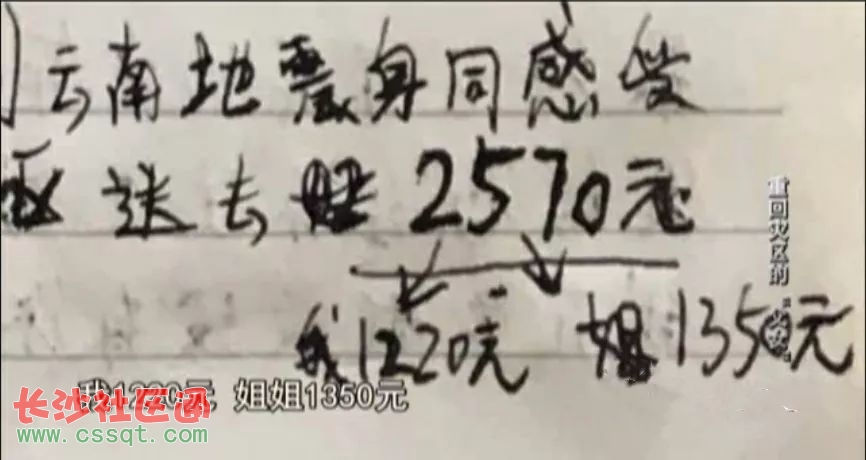 云南地震身同感受
送去 2570元
我1220元 姐1350元
我1220元 姐姐1350元
重回灾区的
长沙社区通
www.cssqt.com